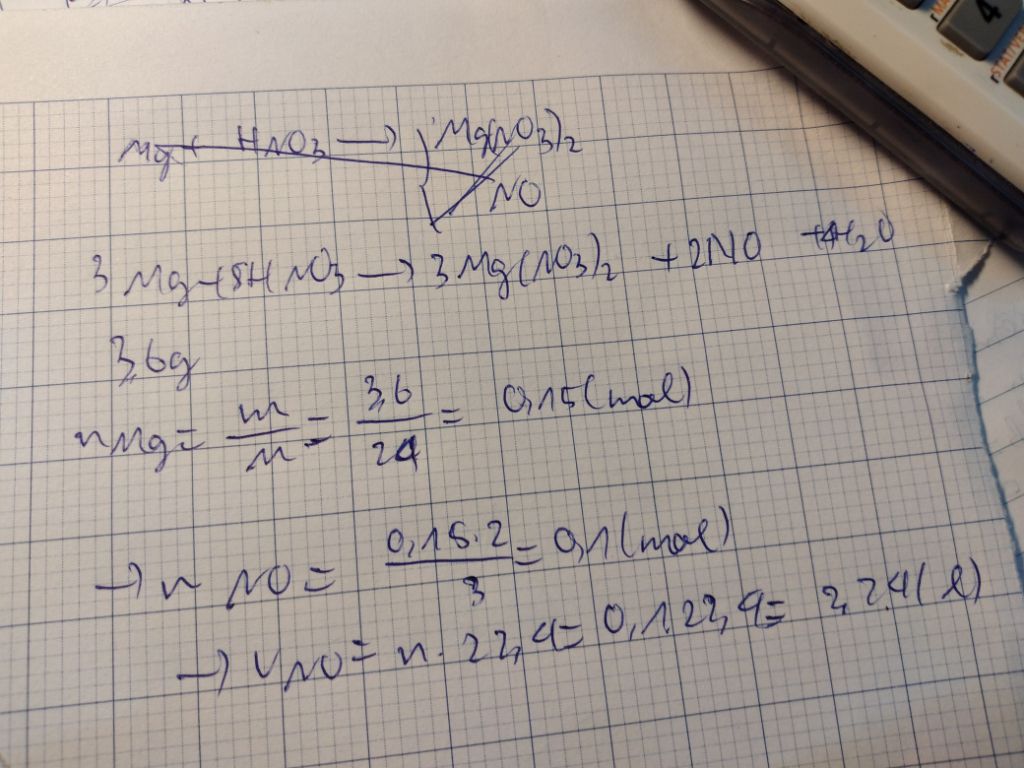 4
Mg + HNO3 → Mg(NO3)2
NO
3Mg + 8HNO3 → 3Mg(NO3)2 + 2NO + H2O
3,6g
nMg = m/M = 3,6/24 = 0,15 (mol)
→ n NO = 0,15.2/3 = 0,1 (mol)
→ VNO = n. 22,4 = 0,1.22,4 = 2,24 (l)